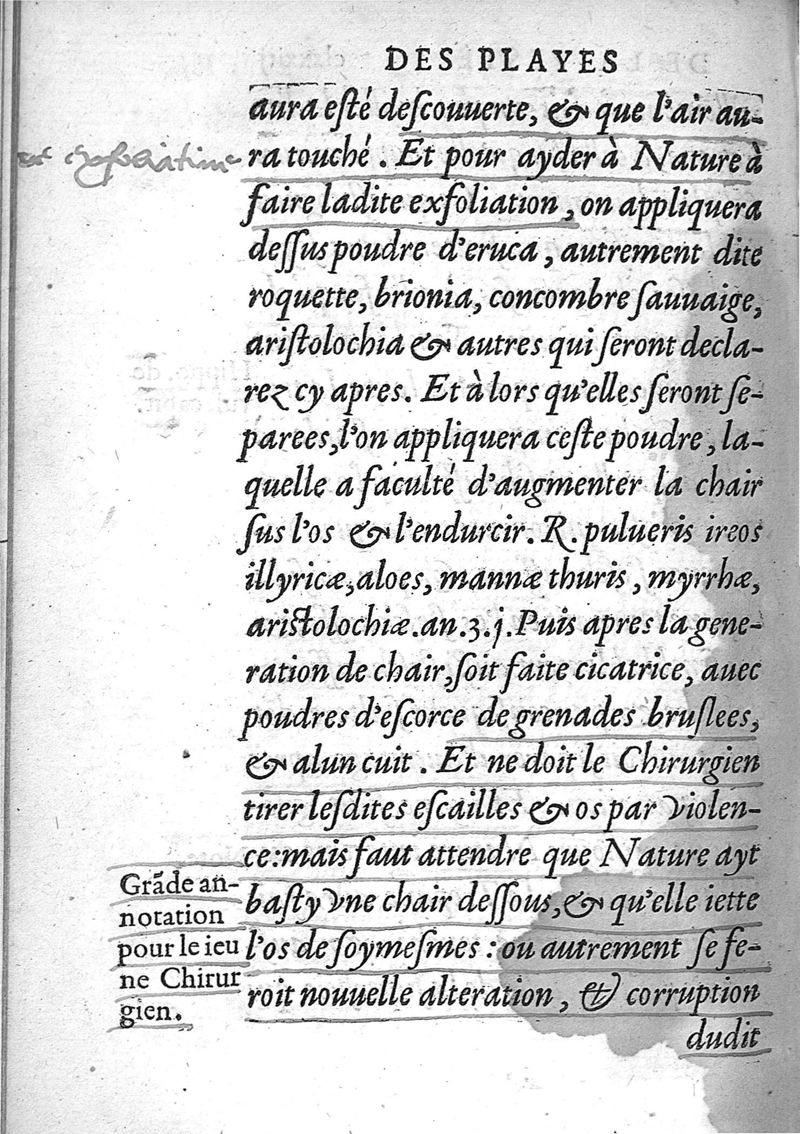 DES PLAYES
aura esté descouuerte, & que l'air au-
ra touché. Et pour ayder à Nature à
faire ladite exfoliation, on appliquera
dessus poudre d'eruca, autrement dite
roquette, brionia, concombre sauuaige,
aristolochia & autres qui seront decla-
rez cy apres. Et à lors qu'elles seront se-
parees, l'on appliquera ceste poudre, la-
quelle a faculté d'augmenter la chair
sus l'os & l'endurcir. R. pulueris ireos
illyricæ, aloes, mannæ thuris, myrrhæ,
aristolochiæ. an. ʒ. j. Puis apres la gene-
ration de chair, soit faite cicatrice, auec
poudres d'escorce de grenades bruslees,
& alun cuit. Et ne doit le Chirurgien
tirer lesdites escailles & os par violen-
ce: mais faut attendre que Nature ayt
basty vne chair dessous, & qu'elle iette
l'os de soymesmes: ou autrement se fe-
roit nouuelle alteration, & corruption
dudit
exfoliation
Grãde an-
notation
pour le ieu
ne Chirur
gien.